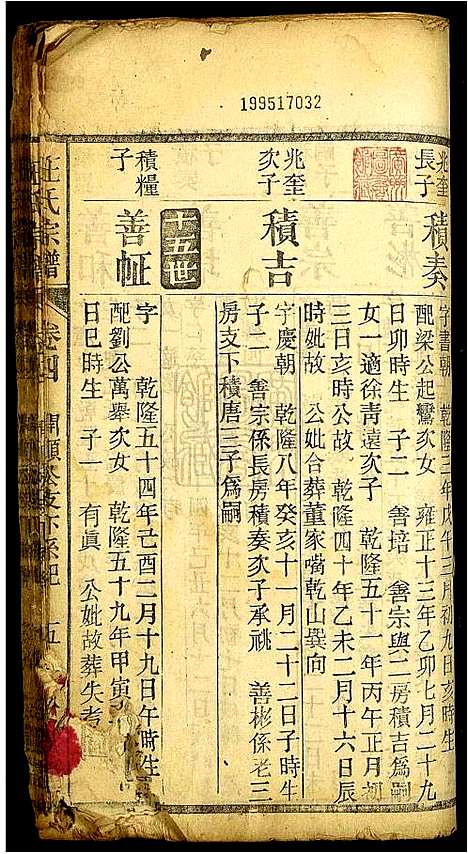 199517032
兆奎
長子
積奏
字書朝 乾隆三年戊午三月初九日亥時生
配梁公起鸞次女 雍正十三年乙卯七月二十九
日卯時生 子二 善培 善宗與二房積吉爲嗣
女一適徐青遠次子 乾隆五十一年丙午正月初
三日亥時公故 乾隆四十年乙未二月十六日辰
時妣故 公妣合葬董家嘴乾山巽向
兆奎
次子
積吉
字慶朝 乾隆八年癸亥十一月二十二日子時生
子二 善宗係長房積奏次子承祧 善彬係老三
房支下積唐三子爲嗣
十五世
積糧
子
善怔
字 乾隆五十四年己酉二月十九日午時生
配劉公萬舉次女 乾隆五十九年甲寅
日巳時生 子一 有眞 公妣故葬失考
氏宗譜
卷四
五